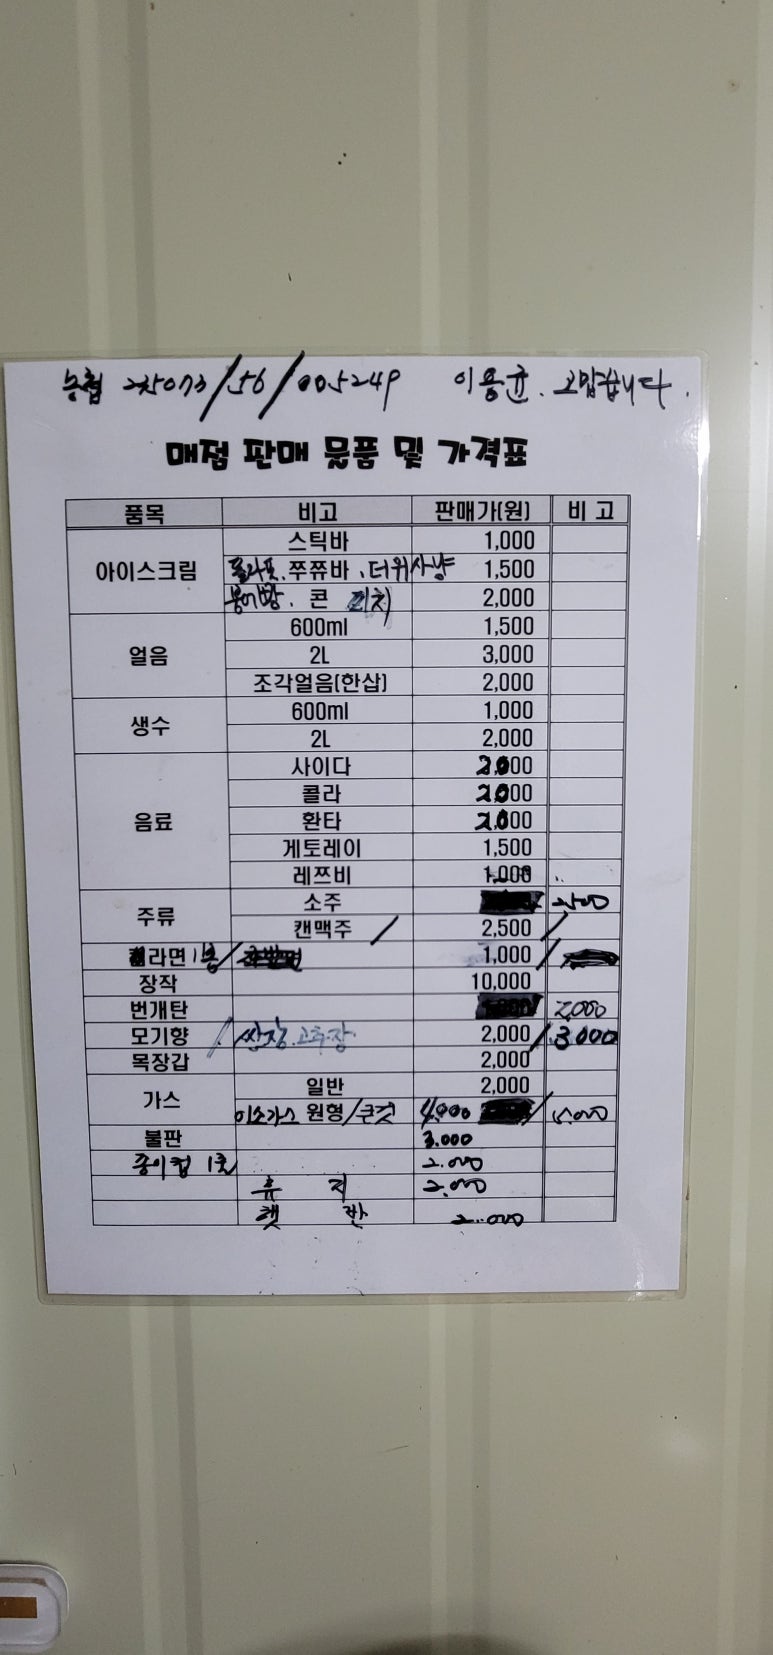 농협 225073/56/005249 이용균. 고맙습니다.
매점 판매 물품 및 가격표
품목 비고 판매가(원) 비 고
아이스크림 스틱바 1,000
폴라포. 쭈쮸바. 더위사냥 1,500
붕어빵. 콘 1,2,000
얼음 600ml 1,500
2L 3,000
조각얼음(한삽) 2,000
생수 600ml 1,000
2L 2,000
음료 사이다 2.000
콜라 2.000
환타 2.000
게토레이 1,500
레쯔비 1,000
주류 소주 2500
캔맥주 / 2,500 /
라면 1봉/ 1,000 /
장작 10,000
번개탄 2,000
모기향 / 쌈장. 고추장 2,000 / 3000
목장갑 2,000
가스 일반 2,000
이소가스 원형/ 4,000 / 5,000
불판 3.000
종이컵 1줄 2.000
휴 지 2,000
햇 반 2.000